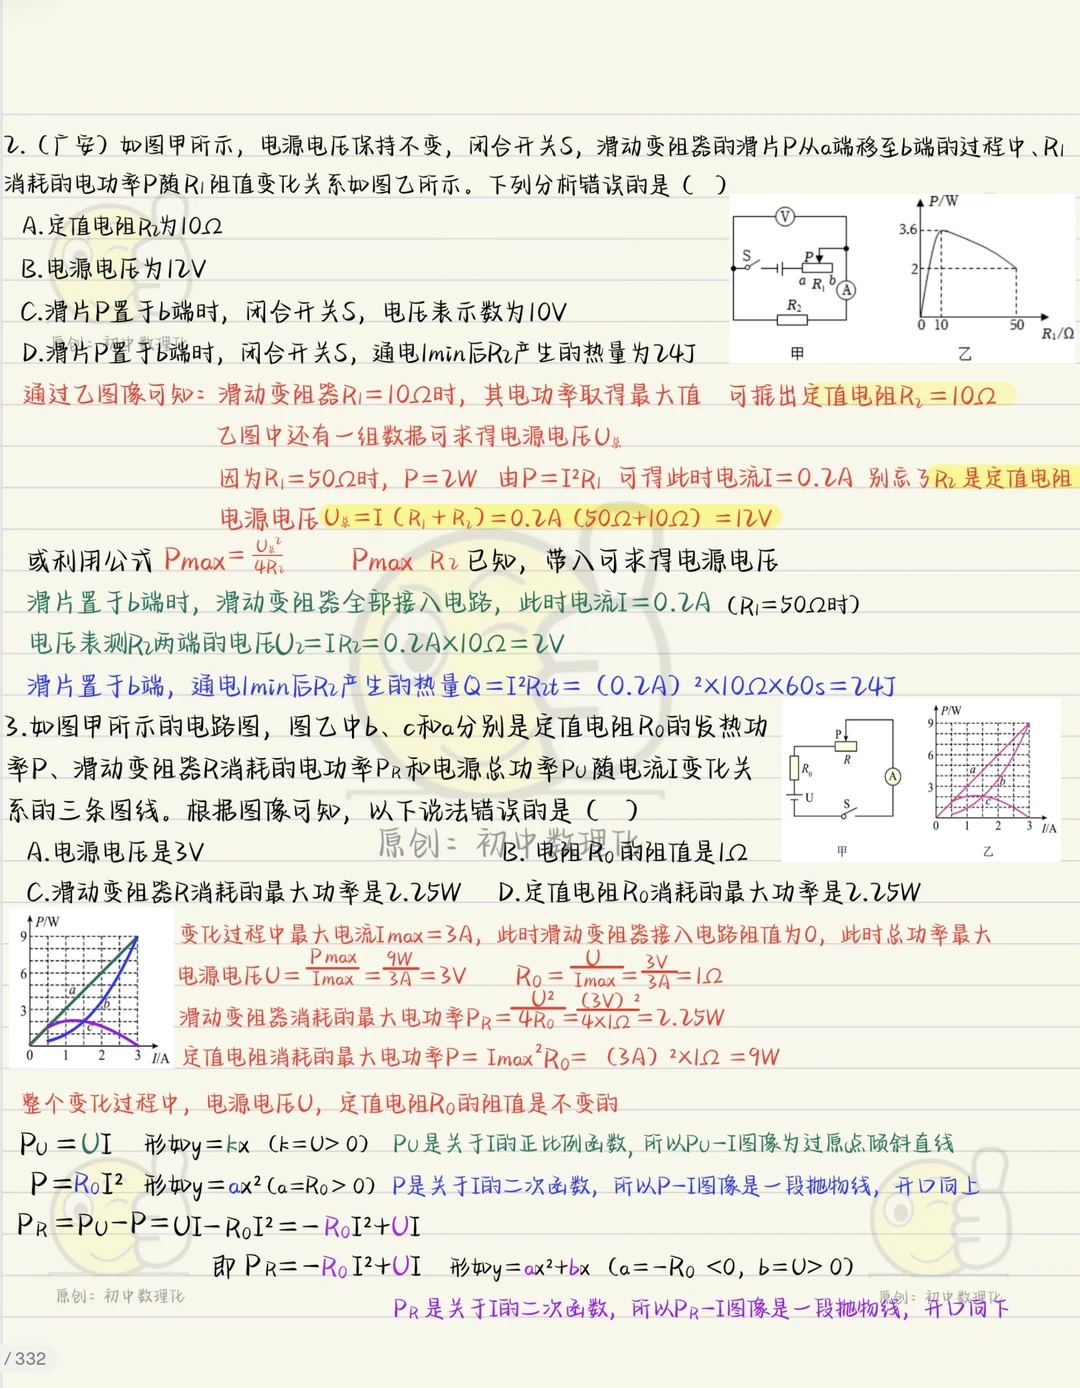 2.（广安）如图甲所示，电源电压保持不变，闭合开关S，滑动变阻器的滑片P从a端移至b端的过程中、R₁
消耗的电功率P随R₁阻值变化关系如图乙所示。下列分析错误的是（ ）
A.定值电阻R₂为10Ω
B.电源电压为12V
C.滑片P置于b端时，闭合开关S，电压表示数为10V
D.滑片P置于b端时，闭合开关S，通电1min后R₂产生的热量为24J
V
S
P
a R₁ b
A
R₂
甲
P/W
3.6
2
0 10 50 R₁/Ω
乙
通过乙图像可知：滑动变阻器R₁=10Ω时，其电功率取得最大值 可推出定值电阻R₂=10Ω
乙图中还有一组数据可求得电源电压U总
因为R₁=50Ω时，P=2W 由P=I²R₁ 可得此时电流I=0.2A 别忘了R₂是定值电阻
电源电压U总=I（R₁+R₂）=0.2A（50Ω+10Ω）=12V
或利用公式 Pmax=U总²/4R₂ Pmax R₂已知，带入可求得电源电压
滑片置于b端时，滑动变阻器全部接入电路，此时电流I=0.2A（R₁=50Ω时）
电压表测R₂两端的电压U₂=IR₂=0.2A×10Ω=2V
滑片置于b端，通电1min后R₂产生的热量Q=I²R₂t=（0.2A）²×10Ω×60s=24J
3.如图甲所示的电路图，图乙中b、c和a分别是定值电阻R₀的发热功
率P、滑动变阻器R消耗的电功率PR和电源总功率PU随电流I变化关
系的三条图线。根据图像可知，以下说法错误的是（ ）
A.电源电压是3V B.电阻R₀的阻值是1Ω
C.滑动变阻器R消耗的最大功率是2.25W D.定值电阻R₀消耗的最大功率是2.25W
P
R
R₀
A
U
S
甲
P/W
9
6
3
a
b
c
0 1 2 3 I/A
乙
P/W
9
6
3
a
b
c
0 1 2 3 I/A
变化过程中最大电流Imax=3A，此时滑动变阻器接入电路阻值为0，此时总功率最大
电源电压U=Pmax/Imax=9W/3A=3V R₀=U/Imax=3V/3A=1Ω
滑动变阻器消耗的最大电功率PR=U²/4R₀=（3V）²/4×1Ω=2.25W
定值电阻消耗的最大电功率P=Imax²R₀=（3A）²×1Ω=9W
整个变化过程中，电源电压U，定值电阻R₀的阻值是不变的
PU=UI 形如y=kx（k=U>0） PU是关于I的正比例函数，所以PU-I图像为过原点倾斜直线
P=R₀I² 形如y=ax²（a=R₀>0） P是关于I的二次函数，所以P-I图像是一段抛物线，开口向上
PR=PU-P=UI-R₀I²=-R₀I²+UI
即PR=-R₀I²+UI 形如y=ax²+bx（a=-R₀<0，b=U>0）
PR是关于I的二次函数，所以PR-I图像是一段抛物线，开口向下
原创：初中数理化
原创：初中数理化
原创：初中数理化
原创：初中数理化
/ 332